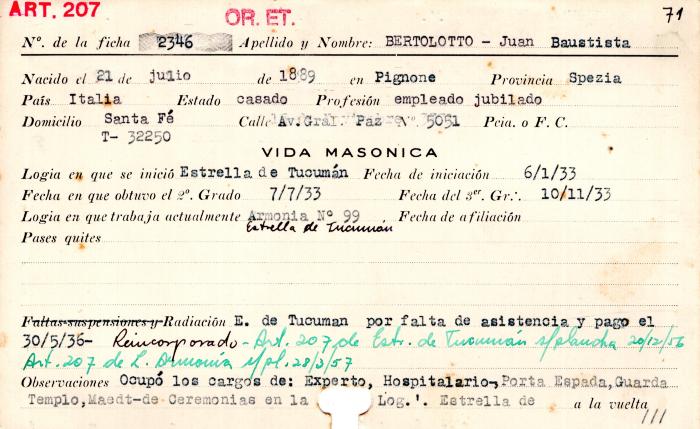 ART. 207
OR. ET.
71
Nº. de la ficha 2346 Apellido y Nombre: BERTOLOTTO - Juan Baustista
Nacido el 21 de julio de 1889 en Pignone Provincia Spezia
País Italia Estado casado Profesión empleado jubilado
Domicilio Santa Fé Calle Av.Gral. Paz Nº. 5051 Pcia. o F. C.
T- 32250
VIDA MASONICA
Logia en que se inició Estrella de Tucumán Fecha de iniciación 6/1/33
Fecha en que obtuvo el 2º. Grado 7/7/33 Fecha del 3er. Gr∴. 10/11/33
Logia en que trabaja actualmente Armonia Nº 99 Fecha de afiliación
Estrella de Tucumán
Pases quites
Faltas-suspensiones y Radiación E. de Tucuman por falta de asistencia y pago el
30/5/36- Reincorporado - Art. 207 de Estr. de Tucumán s/plancha 20/12/56
Art. 207 de L. Armonía s/pl. 28/2/57
Observaciones Ocupó los cargos de: Experto, Hospitalario-, Porta Espada, Guarda
Templo, Maedt-de Ceremonias en la Log.'. Estrella de a la vuelta
///